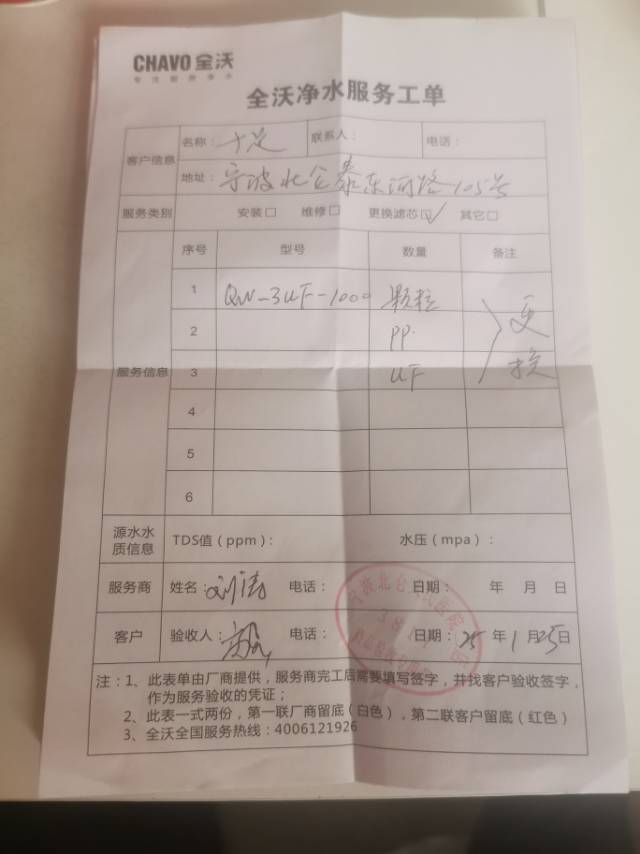 CHAVO 全沃
专注厨房净水
全沃净水服务工单
客户信息 名称：十足 联系人： 电话：
地址：宁波北仑泰东河路105号
服务类别 安装□ 维修□ 更换滤芯☑ 其它□
服务信息 序号 型号 数量 备注
1 QW-3UF-1000 颗粒 更换
2 PP.
3 UF
4
5
6
源水水质信息 TDS值（ppm）： 水压（mpa）：
服务商 姓名：刘涛 电话： 日期： 年 月 日
客户 验收人： 电话： 日期：25年1月25日
注：1、此表单由厂商提供，服务商完工后需要填写签字，并找客户验收签字，
作为服务验收的凭证；
2、此表一式两份，第一联厂商留底（白色），第二联客户留底（红色）
3、全沃全国服务热线：4006121926